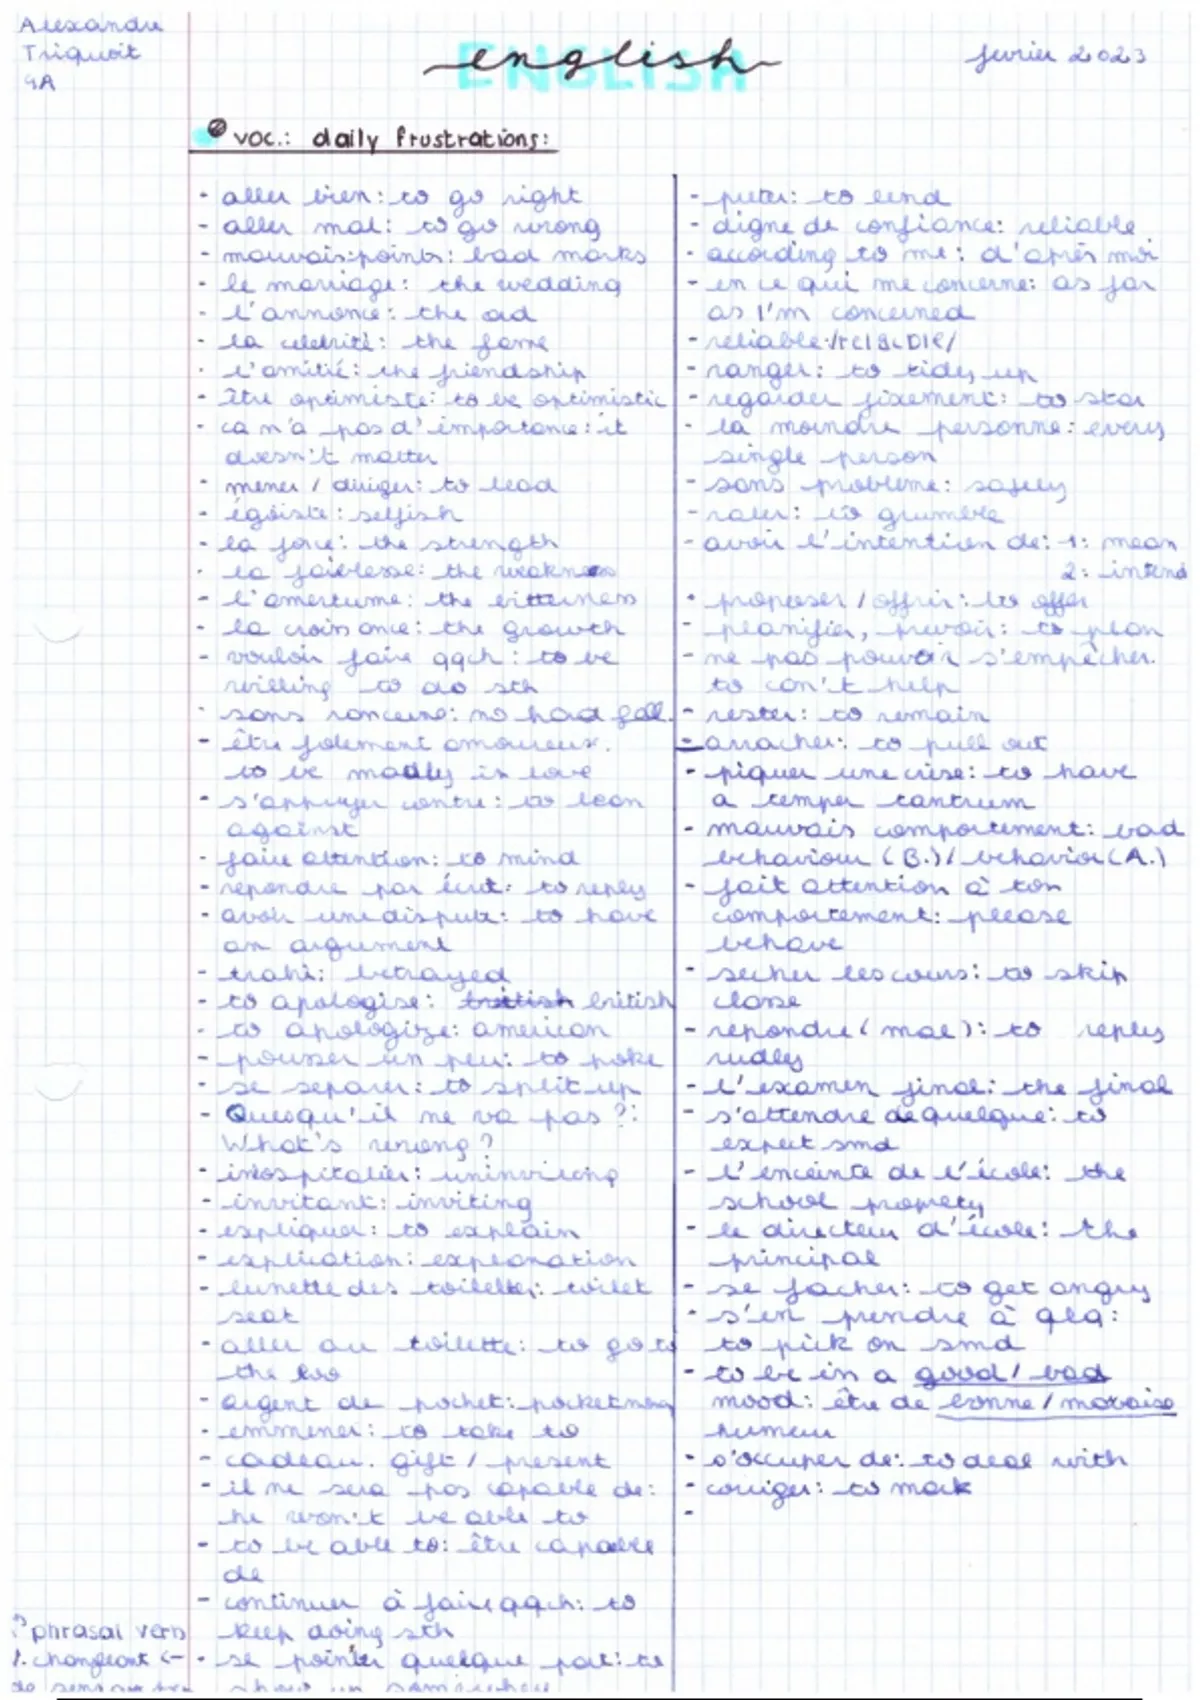 Alexandre
Triquoit
4A
english
ENGLISH
février 2023
voc.: daily frustrations:
- aller bien: to go right
- aller mal: to go wrong
- mauvais points: bad marks
- le mariage: the wedding
- l'annonce: the ad
- la célébrité: the fame
- l'amitié: the friendship
- être optimiste: to be optimistic
- ca n'a pas d'importance: it
doesn't matter
- mener / diriger: to lead
- égoïste: selfish
- la force: the strength
- la faiblesse: the weakness
- l'amertume: the bitterness
- la croissance: the growth
- vouloir faire qqch: to be
willing to do sth
- sans rancune: no hard feel.
- être folement amoureux.
to be madly in love
- s'appuyer contre: to lean
against
- faire attention: to mind
- repondre par écrit: to reply
- avoir une dispute: to have
an argument
- trahi: betrayed
- to apologise: british british
- to apologize: american
- pousser un peu: to poke
- se separer: to split up
- Quesqu'il ne va pas?:
What's wrong?
- inospitalier: uninviting
- invitant: inviting
- expliquer: to explain
- explication: explanation
- lunette des toilettes: toilet
seat
- aller au toilette: to go to
the loo
- argent de pochet: pocketmoney
- emmener: to take to
- cadeau. gift / present
- il ne sera pas capable de:
he won't be able to
- to be able to: être capable
de
- continuer à faire qqch: to
keep doing sth
- se pointer quelque part: to
show up somewhere
phrasal verb
1. changeant <-
de sens
- preter: to lend
- digne de confiance: reliable
- according to me: d'après moi
- en ce qui me concerne: as far
as I'm concerned
- reliable:
- ranger: to tidy up
- regarder fixement: to star
- la moindre personne: every
single person
- sans probleme: safely
- raler: to grumble
- avoir l'intention de: 1: mean
2: intend
- proposer / offrir: to offer
- planifier, prevoir: to plan
- ne pas pouvoir s'empêcher.
to can't help
- rester: to remain
- arracher: to pull out
- piquer une crise: to have
a temper tantrum
- mauvais comportement: bad
behaviour (B.) / behavior (A.)
- fait attention à ton
comportement: please
behave
- secher les cours: to skip
classe
- repondre (mal): to reply
rudley
- l'examen final: the final
- s'attendre de quelque: to
expect smd
- l'enceinte de l'école: the
school property
- le directeur d'école: the
principal
- se facher: to get angry
- s'en prendre à qlq:
to pick on smd
- to be in a good / bad
mood: être de bonne / mavaise
humeur
- s'occuper de: to deal with
- corriger: to mark
-